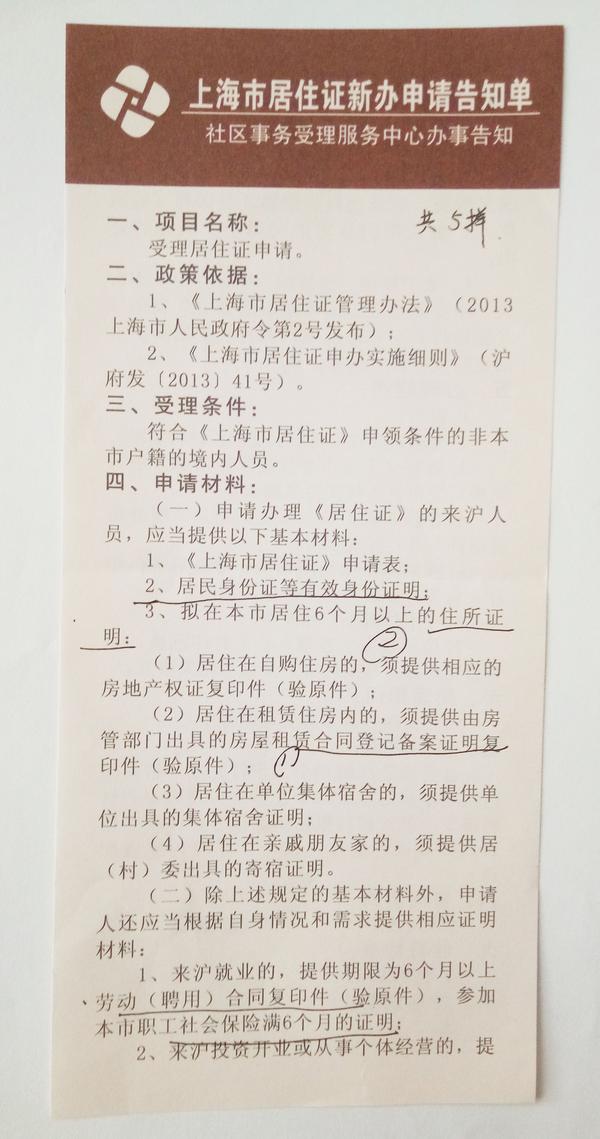 上海市居住证新办申请告知单
社区事务受理服务中心办事告知
一、项目名称：
共5样
受理居住证申请。
二、政策依据：
1、《上海市居住证管理办法》（2013
上海市人民政府令第2号发布）；
2、《上海市居住证申办实施细则》（沪
府发〔2013〕41号）。
三、受理条件：
符合《上海市居住证》申领条件的非本
市户籍的境内人员。
四、申请材料：
（一）申请办理《居住证》的来沪人
员，应当提供以下基本材料：
1、《上海市居住证》申请表；
2、居民身份证等有效身份证明；
3、拟在本市居住6个月以上的住所证
明：
②
（1）居住在自购住房的，须提供相应的
房地产权证复印件（验原件）；
（2）居住在租赁住房内的，须提供由房
管部门出具的房屋租赁合同登记备案证明复
印件（验原件）；
①
（3）居住在单位集体宿舍的，须提供单
位出具的集体宿舍证明；
（4）居住在亲戚朋友家的，须提供居
（村）委出具的寄宿证明。
（二）除上述规定的基本材料外，申请
人还应当根据自身情况和需求提供相应证明
材料：
1、来沪就业的，提供期限为6个月以上
劳动（聘用）合同复印件（验原件），参加
本市职工社会保险满6个月的证明；
2、来沪投资开业或从事个体经营的，提